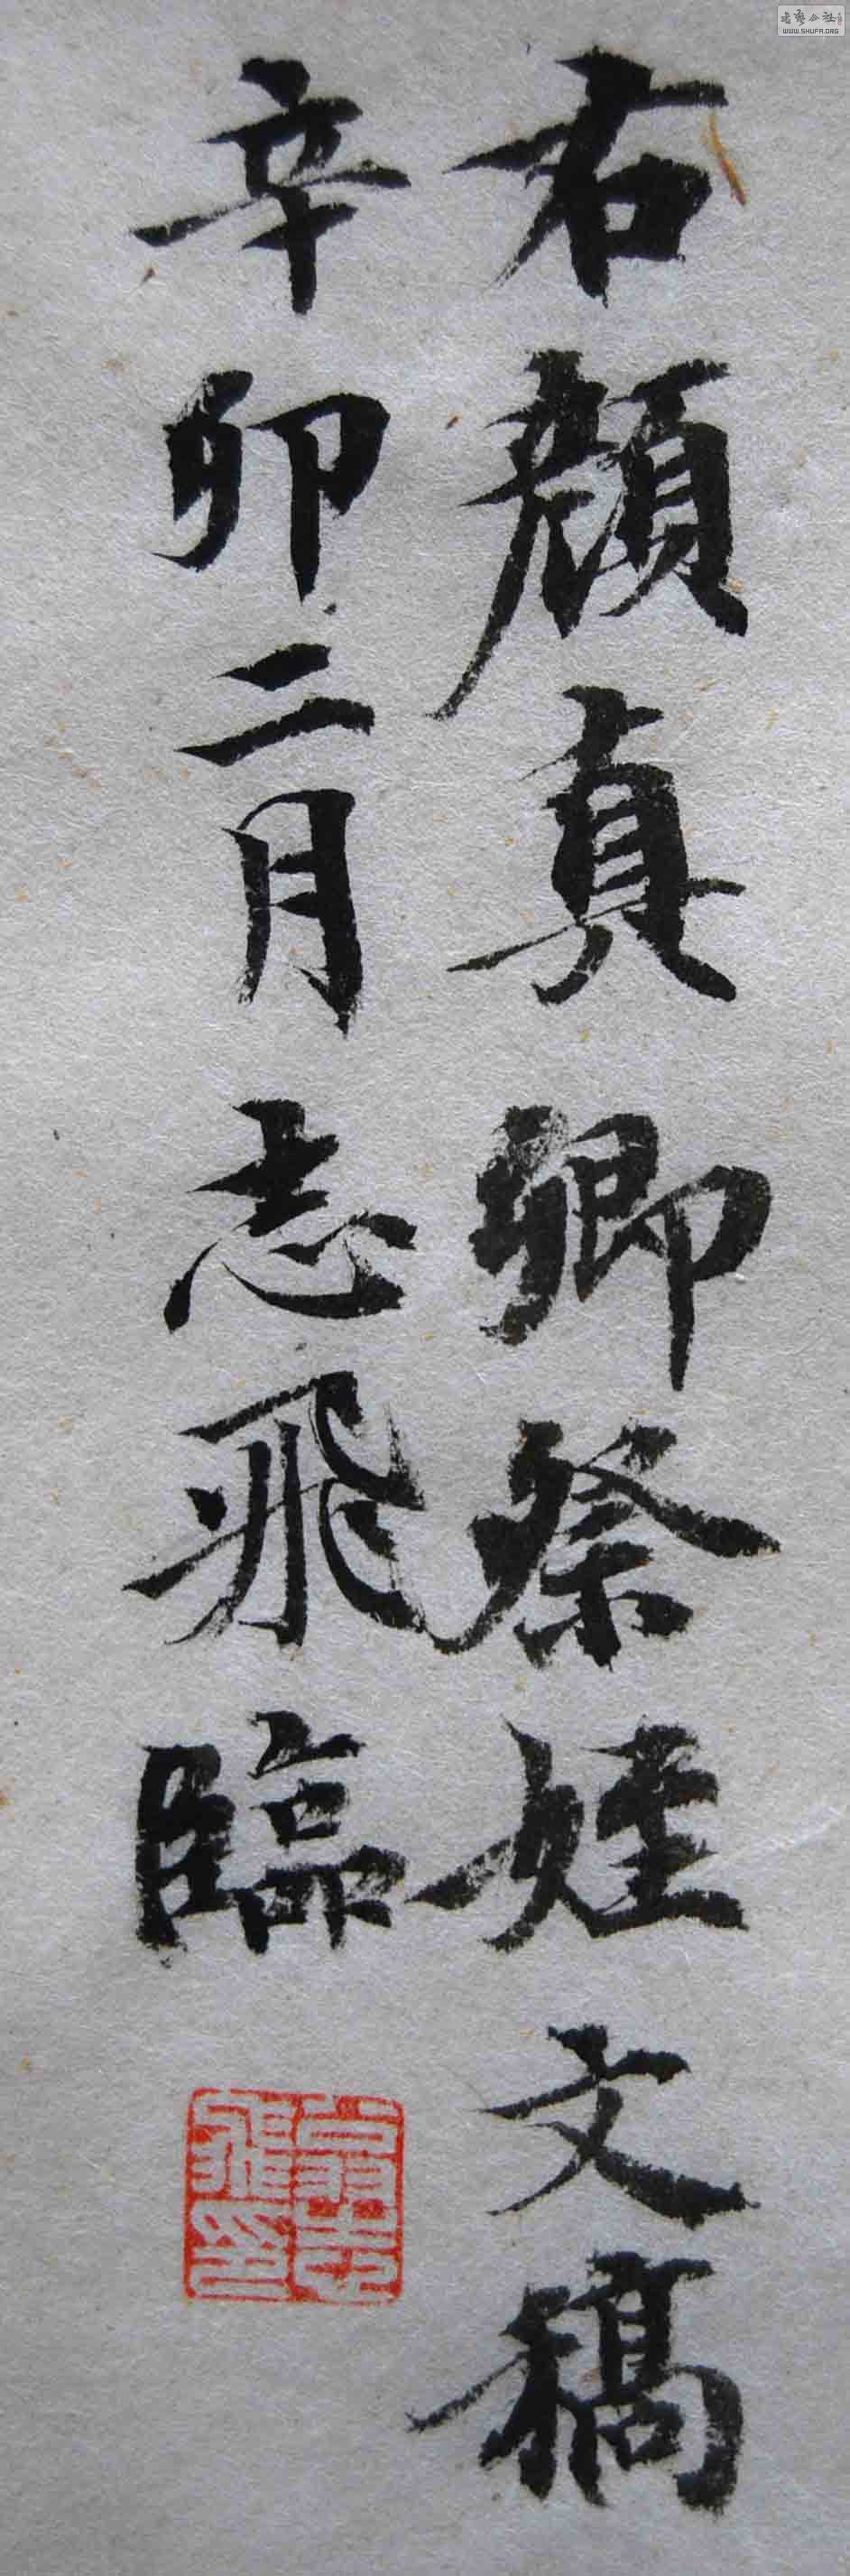 右顏真卿祭姪文稿
辛卯二月志飛臨
WWW.SHUFA.ORG